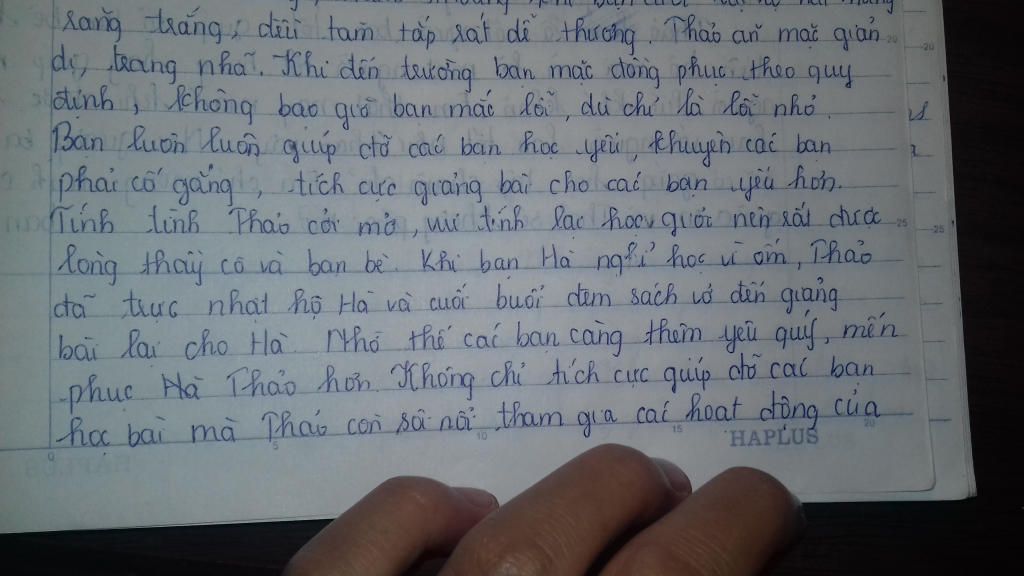 răng trắng, đều tăm tắp rất dễ thương. Thảo ăn mặc giản
dị, trang nhã. Khi đến trường bạn mặc đồng phục theo quy
định, không bao giờ bạn mắc lỗi, dù chỉ là lỗi nhỏ.
Bạn luôn luôn giúp đỡ các bạn học yếu, khuyên các bạn
phải cố gắng, tích cực giảng bài cho các bạn yếu hơn.
Tính tình Thảo cởi mở, vui tính lạc quan nên rất được
lòng thầy cô và bạn bè. Khi bạn Hà nghỉ học vì ốm, Thảo
đã trực nhật hộ Hà và cuối buổi đem sách vở đến giảng
bài lại cho Hà. Nhờ thế các bạn càng thêm yêu quý, mến
phục Hà Thảo hơn. Không chỉ tích cực giúp đỡ các bạn
học bài mà Thảo còn sôi nổi tham gia các hoạt động của
HAPLUS